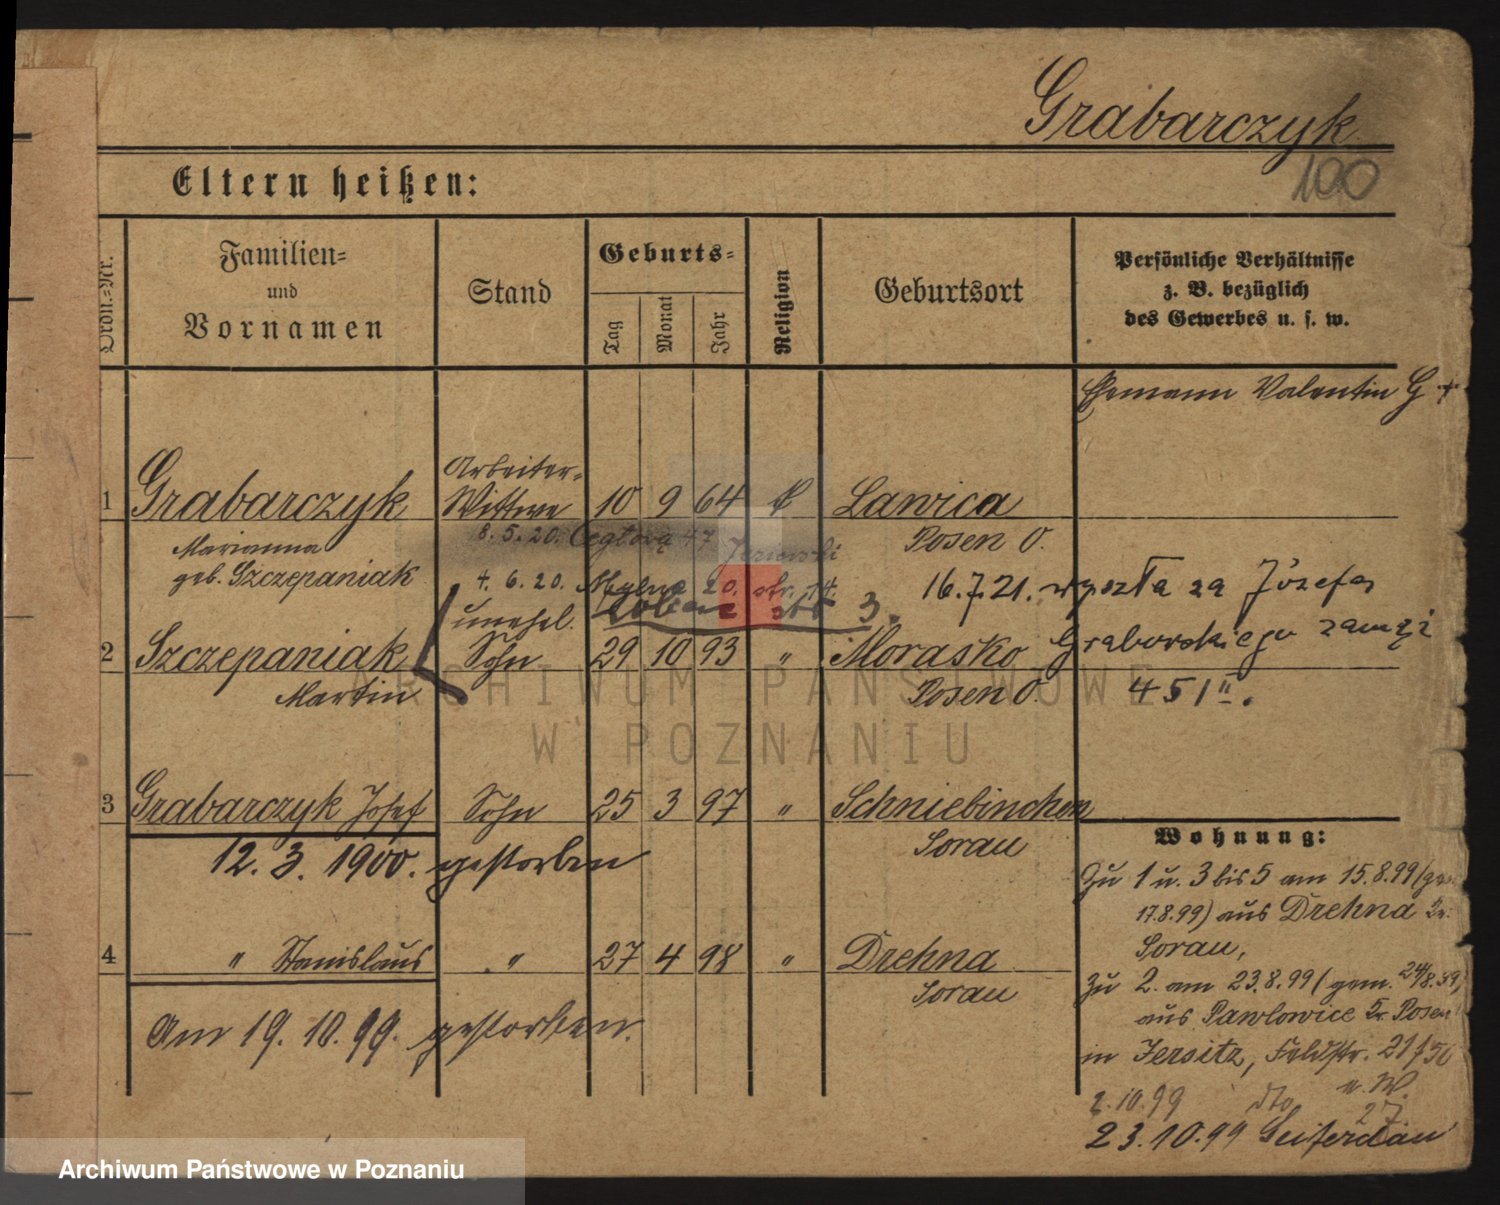 Grabarczyk
100
Eltern heißen:
Ordn.-Nr.
Familien-
und
Vornamen
Stand
Geburts-
Tag
Monat
Jahr
Religion
Geburtsort
Persönliche Verhältnisse
z. B. bezüglich
des Gewerbes u. s. w.
Ehemann Valentin G +
1 Grabarczyk Arbeiter-Wittwe 10 9 64 Lawica
Marianna Posen O.
geb. Szczepaniak
8. 5. 20.
4. 6. 20.
16.7.21. wyszła za Józefa
Graborskiego zamąż
451II.
2 Szczepaniak unehel. Sohn 29 10 93 " Morasko
Martin Posen O.
3 Grabarczyk Josef Sohn 25 3 97 " Schniebinchen
Sorau
12. 3. 1900. gestorben
4 " Stanislaus " 27 4 98 " Drehna
Sorau
Am 19. 10. 99. gestorben.
Wohnung:
Zu 1 u. 3 bis 5 am 15.8.99
17.8.99) aus Drehna Kr.
Sorau,
Zu 2. am 23.8.99 (gem. 24/8.99)
aus Pawlowice Kr. Posen
in Jersitz, Feldstr. 21/
2.10.99 dto u. W.
27
23.10.99
ARCHIWUM PAŃSTWOWE
W POZNANIU
Archiwum Państwowe w Poznaniu